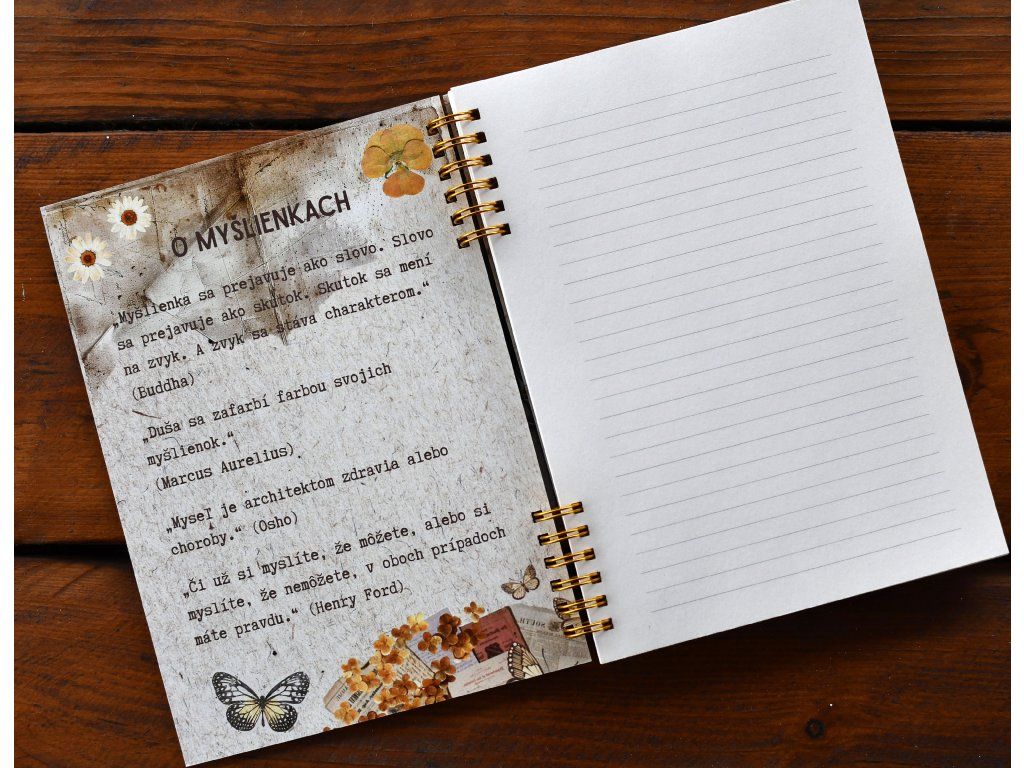 O MYŠLIENKACH
„Myšlienka sa prejavuje ako slovo. Slovo
sa prejavuje ako skutok. Skutok sa mení
na zvyk. A zvyk sa stáva charakterom.“
(Buddha)
„Duša sa zafarbí farbou svojich
myšlienok.“
(Marcus Aurelius)
„Myseľ je architektom zdravia alebo
choroby.“ (Osho)
„Či už si myslíte, že môžete, alebo si
myslíte, že nemôžete, v oboch prípadoch
máte pravdu.“ (Henry Ford)
SOUTH